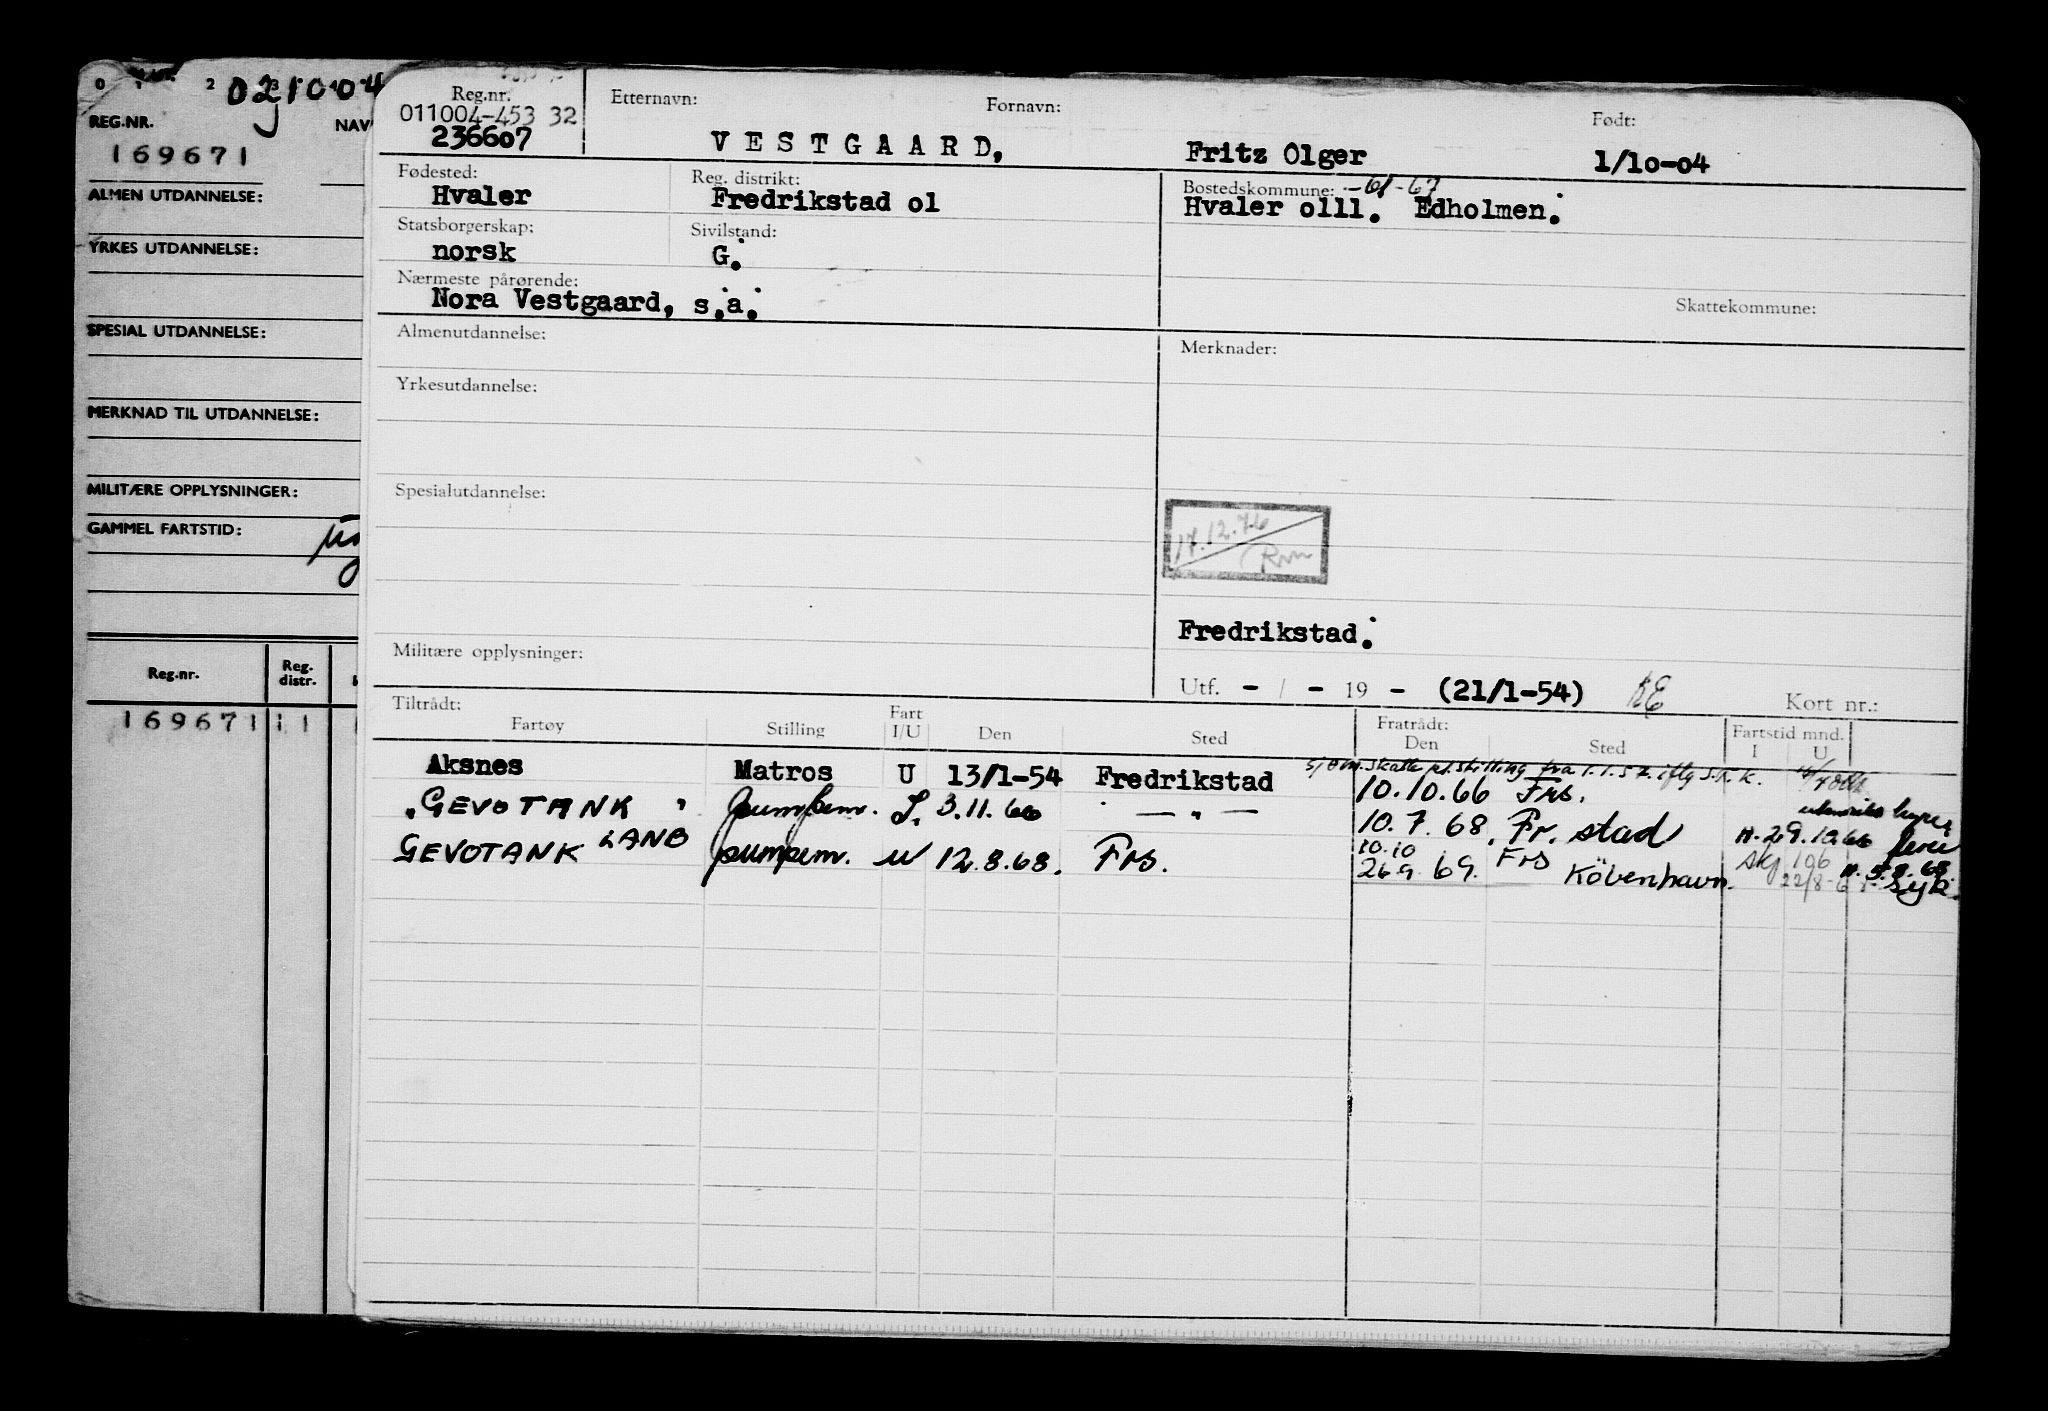 0 1 2 3
021004
REG.NR. NAV
169671
ALMEN UTDANNELSE:
YRKES UTDANNELSE:
SPESIAL UTDANNELSE:
MERKNAD TIL UTDANNELSE:
MILITÆRE OPPLYSNINGER:
GAMMEL FARTSTID:
Reg.nr. Reg. distr.
169671 11
Reg.nr. Etternavn: Fornavn: Født:
011004-453 32
236607 VESTGAARD, Fritz Olger 1/10-04
Fødested: Reg. distrikt: Bostedskommune: -61-67
Hvaler Fredrikstad 01 Hvaler 0111. Edholmen.
Statsborgerskap: Sivilstand:
norsk G.
Nærmeste pårørende: Skattekommune:
Nora Vestgaard, s.a.
Almenutdannelse: Merknader:
Yrkesutdannelse:
Spesialutdannelse:
17.12.76
Fredrikstad.
Militære opplysninger:
Utf. - / - 19 - (21/1-54) Kort nr.:
Tiltrådt: Fratrådt: Fartstid mnd.
Fartøy Stilling Fart I/U Den Sted Den Sted I U
Aksnes Matros U 13/1-54 Fredrikstad 10.10.66 Frs.
"GEVOTANK" pumpem. 3.11.66 — " — 10.7.68. Fr.stad
H. 29.10.66
GEVOTANK LAND pumpem. U 12.8.68. Frs. 10.10 Frs
26.9.69. København.
22/8-6
H. 5.8.68.
Syk.